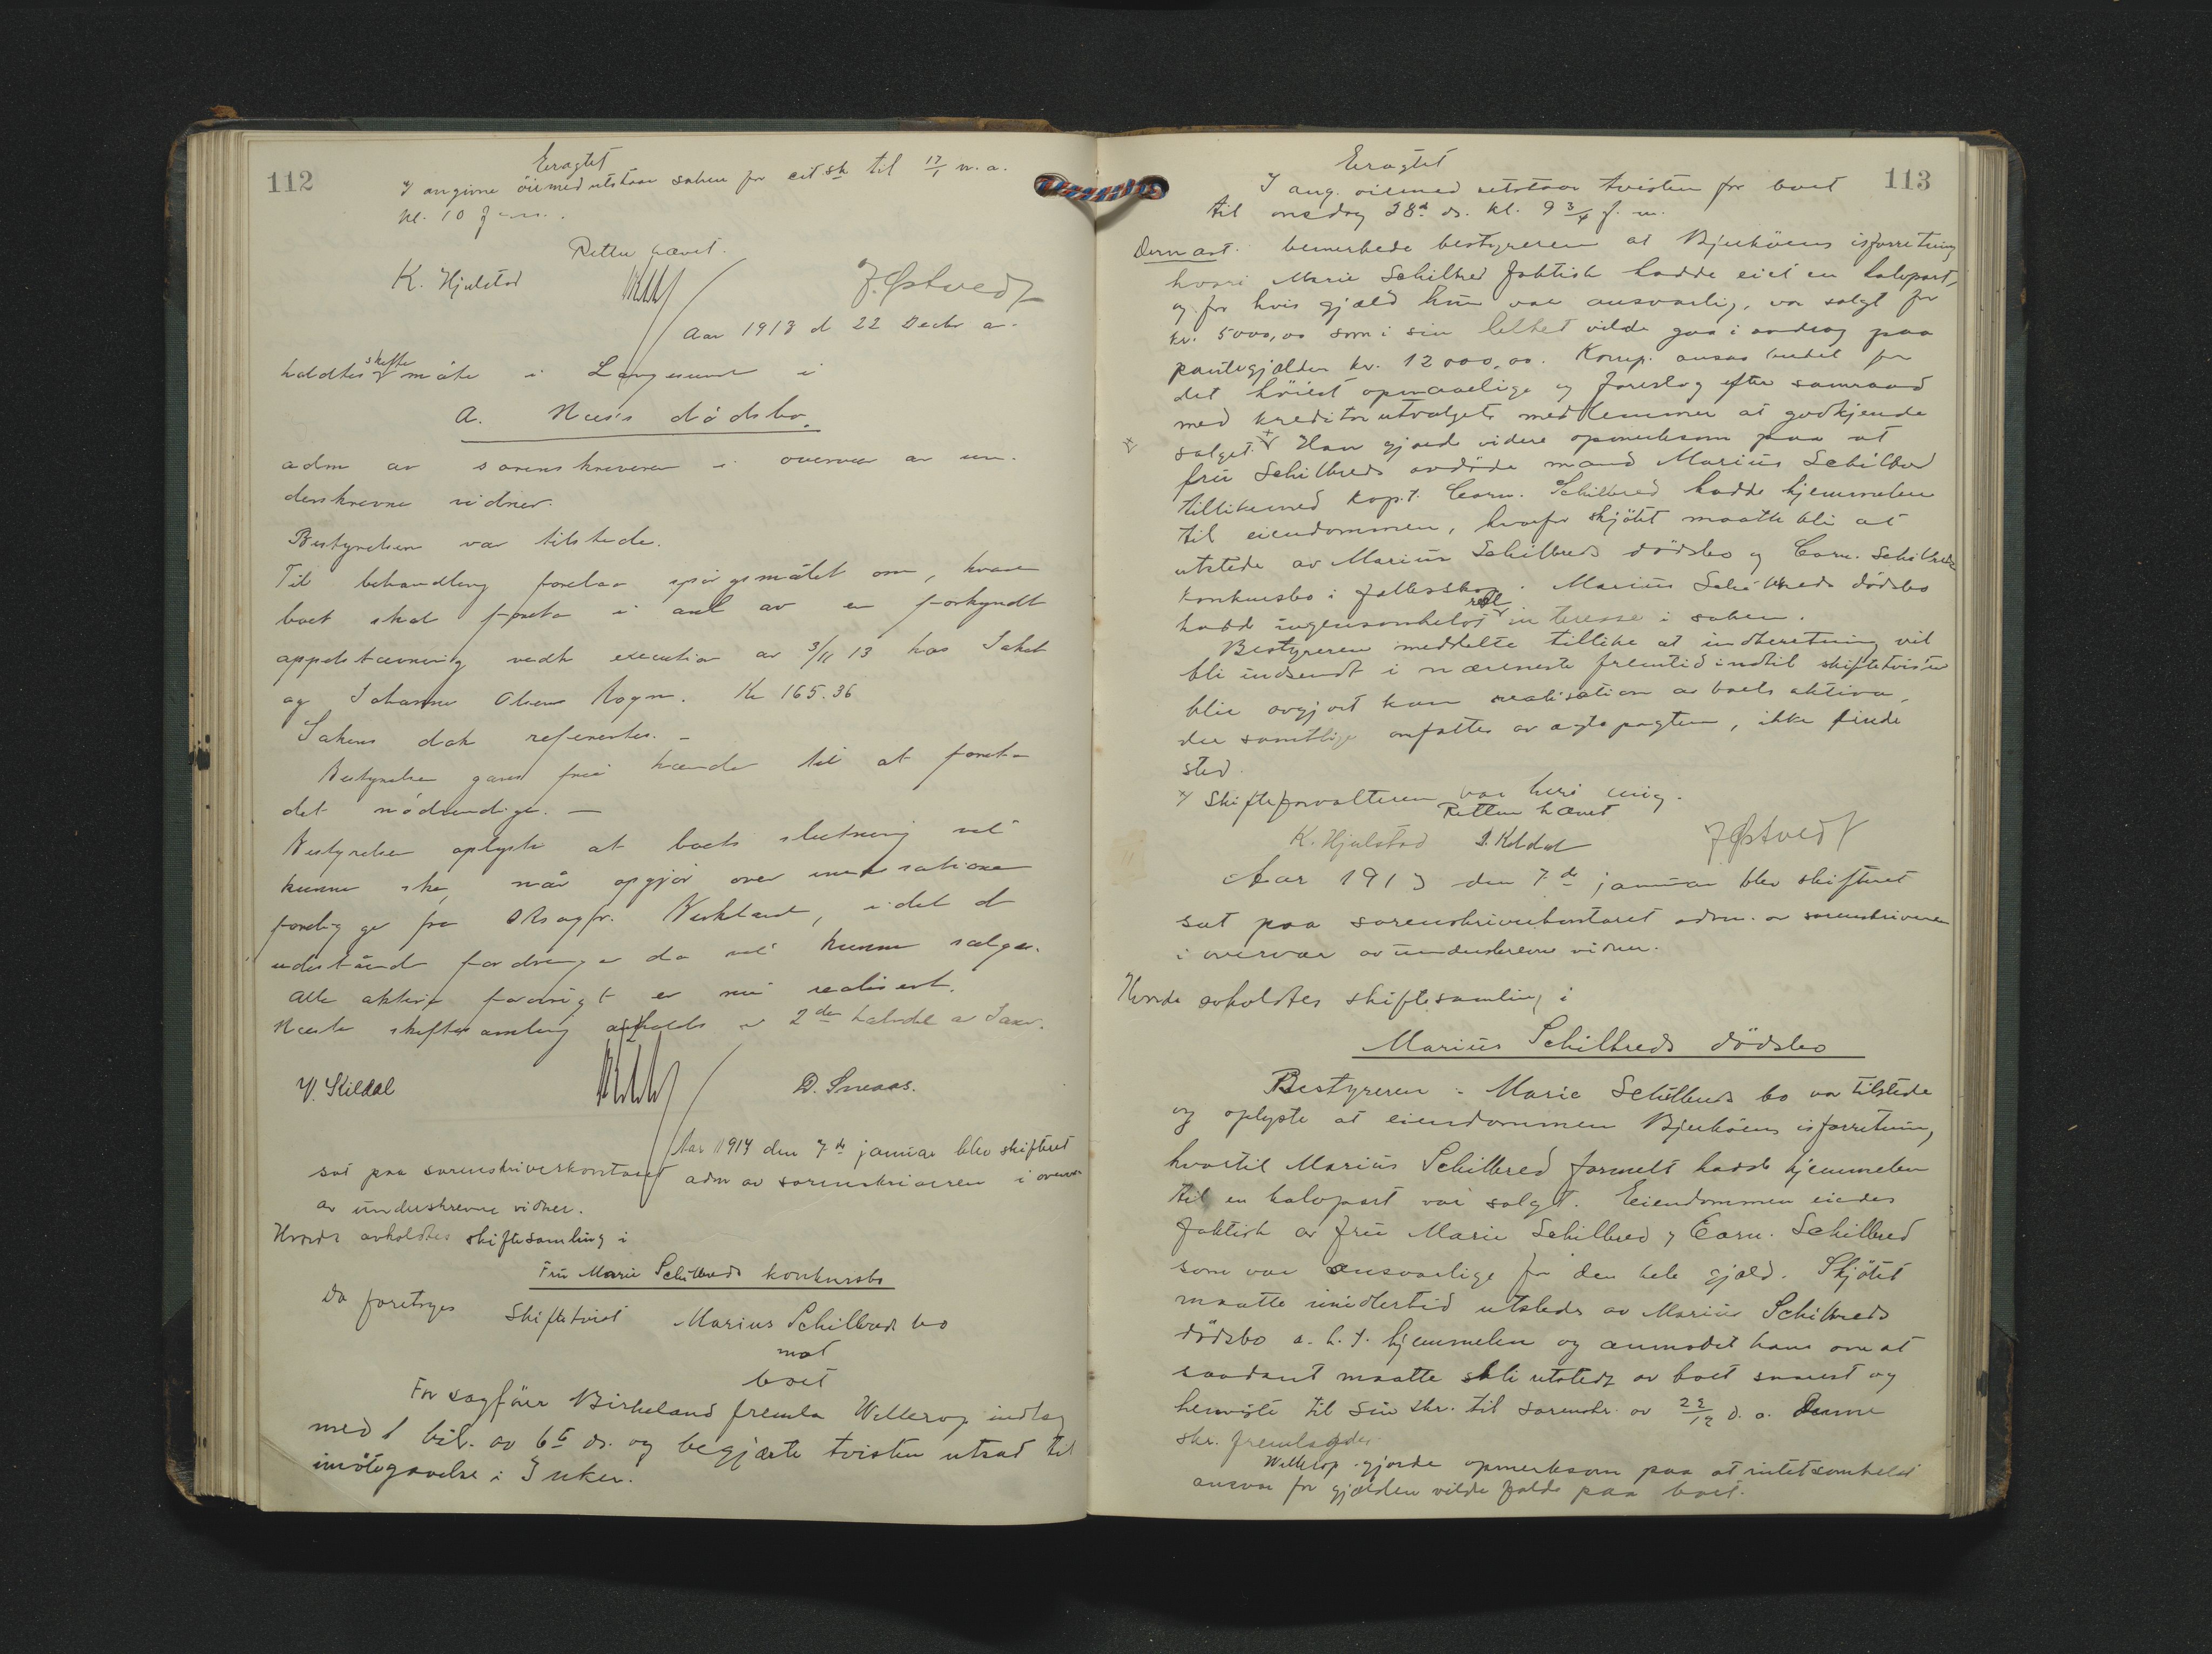 112
Eragtet
I angivne öiemed utstaar saken for cit. sk til 17/1 n. a.
kl. 10 fm.
Retten hævet.
K. Hjulstad
J. Østvedt
Aar 1913 d 22 Decbr a.
holdtes skifte möte i Langesund i
A. Næss dödsbo.
adm av sorenskriveren i overvær av un-
derskrevne vidner.
Bestyrelsen var tilstede.
Til behandling forelaa spörgsmålet om, hvad
boet skal foreta i anl av en forkyndt
appelstævning vedk execution av 3/11 13 hos Jakob
og Johanne Olsens Rogn. Kr 165.36
Sakens dok refereertes. –
Bestyrelsen gaves frie hænder til at foreta
det nödvendige. –
Bestyrelsen oplyste at boets slutning vil
kunne ske, når opgjör over inkassationer
foreligger fra O.R.sagfr. Verkland, idet de
utestående fordringer da vil kunne sælges.
Alle aktiva forövrigt er nu realisert.
Næste skiftesamling avholdes i 2den halvdel av Janr.
V. Kildal
D. Sneaas.
Aar 1914 den 7de januar blev skifteret
sat paa sorenskriverkontoret adm av sorenskriveren i overvær
av underskrevne vidner.
Hvorda avholdtes skiftesamling i
Fru Marie Schilbreds konkursbo
Da foretoges Skiftetvist Marius Schilbreds bo
mot
boet
For sagförer Birkeland fremla Wellerop indlæg
med 1 bil. av 6te ds. og begjærte tvisten utsat til
imötegaaelse i 3 uker.
113
Eragtet
I ang. öiemed utstaar tvisten for boet
til onsdag 28de ds. kl. 9 3/4 f. m.
Dernæst bemerkede bestyreren at Bjerköens isforretning
hvori Marie Schilbred faktisk hadde eiet en halvpart,
og for hvis gjæld hun var ansvarlig, var solgt for
kr. 5000,00 som i sin helhet vilde gaa i avdrag paa
pantegjælden kr. 12 000,00. Komp. ansaa budet for
det höiest opnaaelige og foreslog efter samraad
med kreditorutvalgets medlemmer at godkjende
salget. x Han gjorde videre opmerksom paa at
fru Schilbreds avdöde mand Marius Schilbred
tillikemed kapt. Carn. Schilbred hadde hjemmelen
til eiendommen, hvorfor skjötet maatte bli at
utstede av Marius Schilbreds dödsbo og Carn. Schilbreds
konkursbo i fællesskap. Marius Schilbreds dödsbo
hadde ingensomhelst reel interesse i saken.
Bestyreren meddelte tillike at indberetning vil
bli indsendt i nærmeste fremtid indtil skiftetvisten
blir avgjort kan realisation av boets aktiva,
der samtlige omfattes av ægtepagten, ikke finde
sted.
x Skifteforvalteren var heri enig.
Retten hævet
K. Hjulstad J. Østvedt
Aar 1913 den 7de januar blev skifteret
sat paa sorenskriverkontoret adm. av sorenskriveren
i overvær av underskrevne vidner.
Hvorda avholdtes skiftesamling i
Marius Schilbreds dödsbo
Bestyreren i Marie Schilbreds bo var tilstede
og oplyste at eiendommen Bjerköens isforretning,
hvortil Marius Schilbred formelt hadde hjemmelen
til en halvpart var solgt. Eiendommen eiedes
faktisk av fru Marie Schilbred og Carn. Schilbred
som var ansvarlige for den hele gjæld. Skjötet
maatte imidlertid utstedes av Marius Schilbreds
dödsbo a. h. t. hjemmelen og anmodet hans om at
saadant maatte bli utstedt av boet snarest og
henviste til sin skr. til sorenskr. av 22/12 d. a. Denne
skr. fremlagdes.
Wellerop gjorde opmerksom paa at intetsomhelst
ansvar for gjælden vilde falde paa boet.